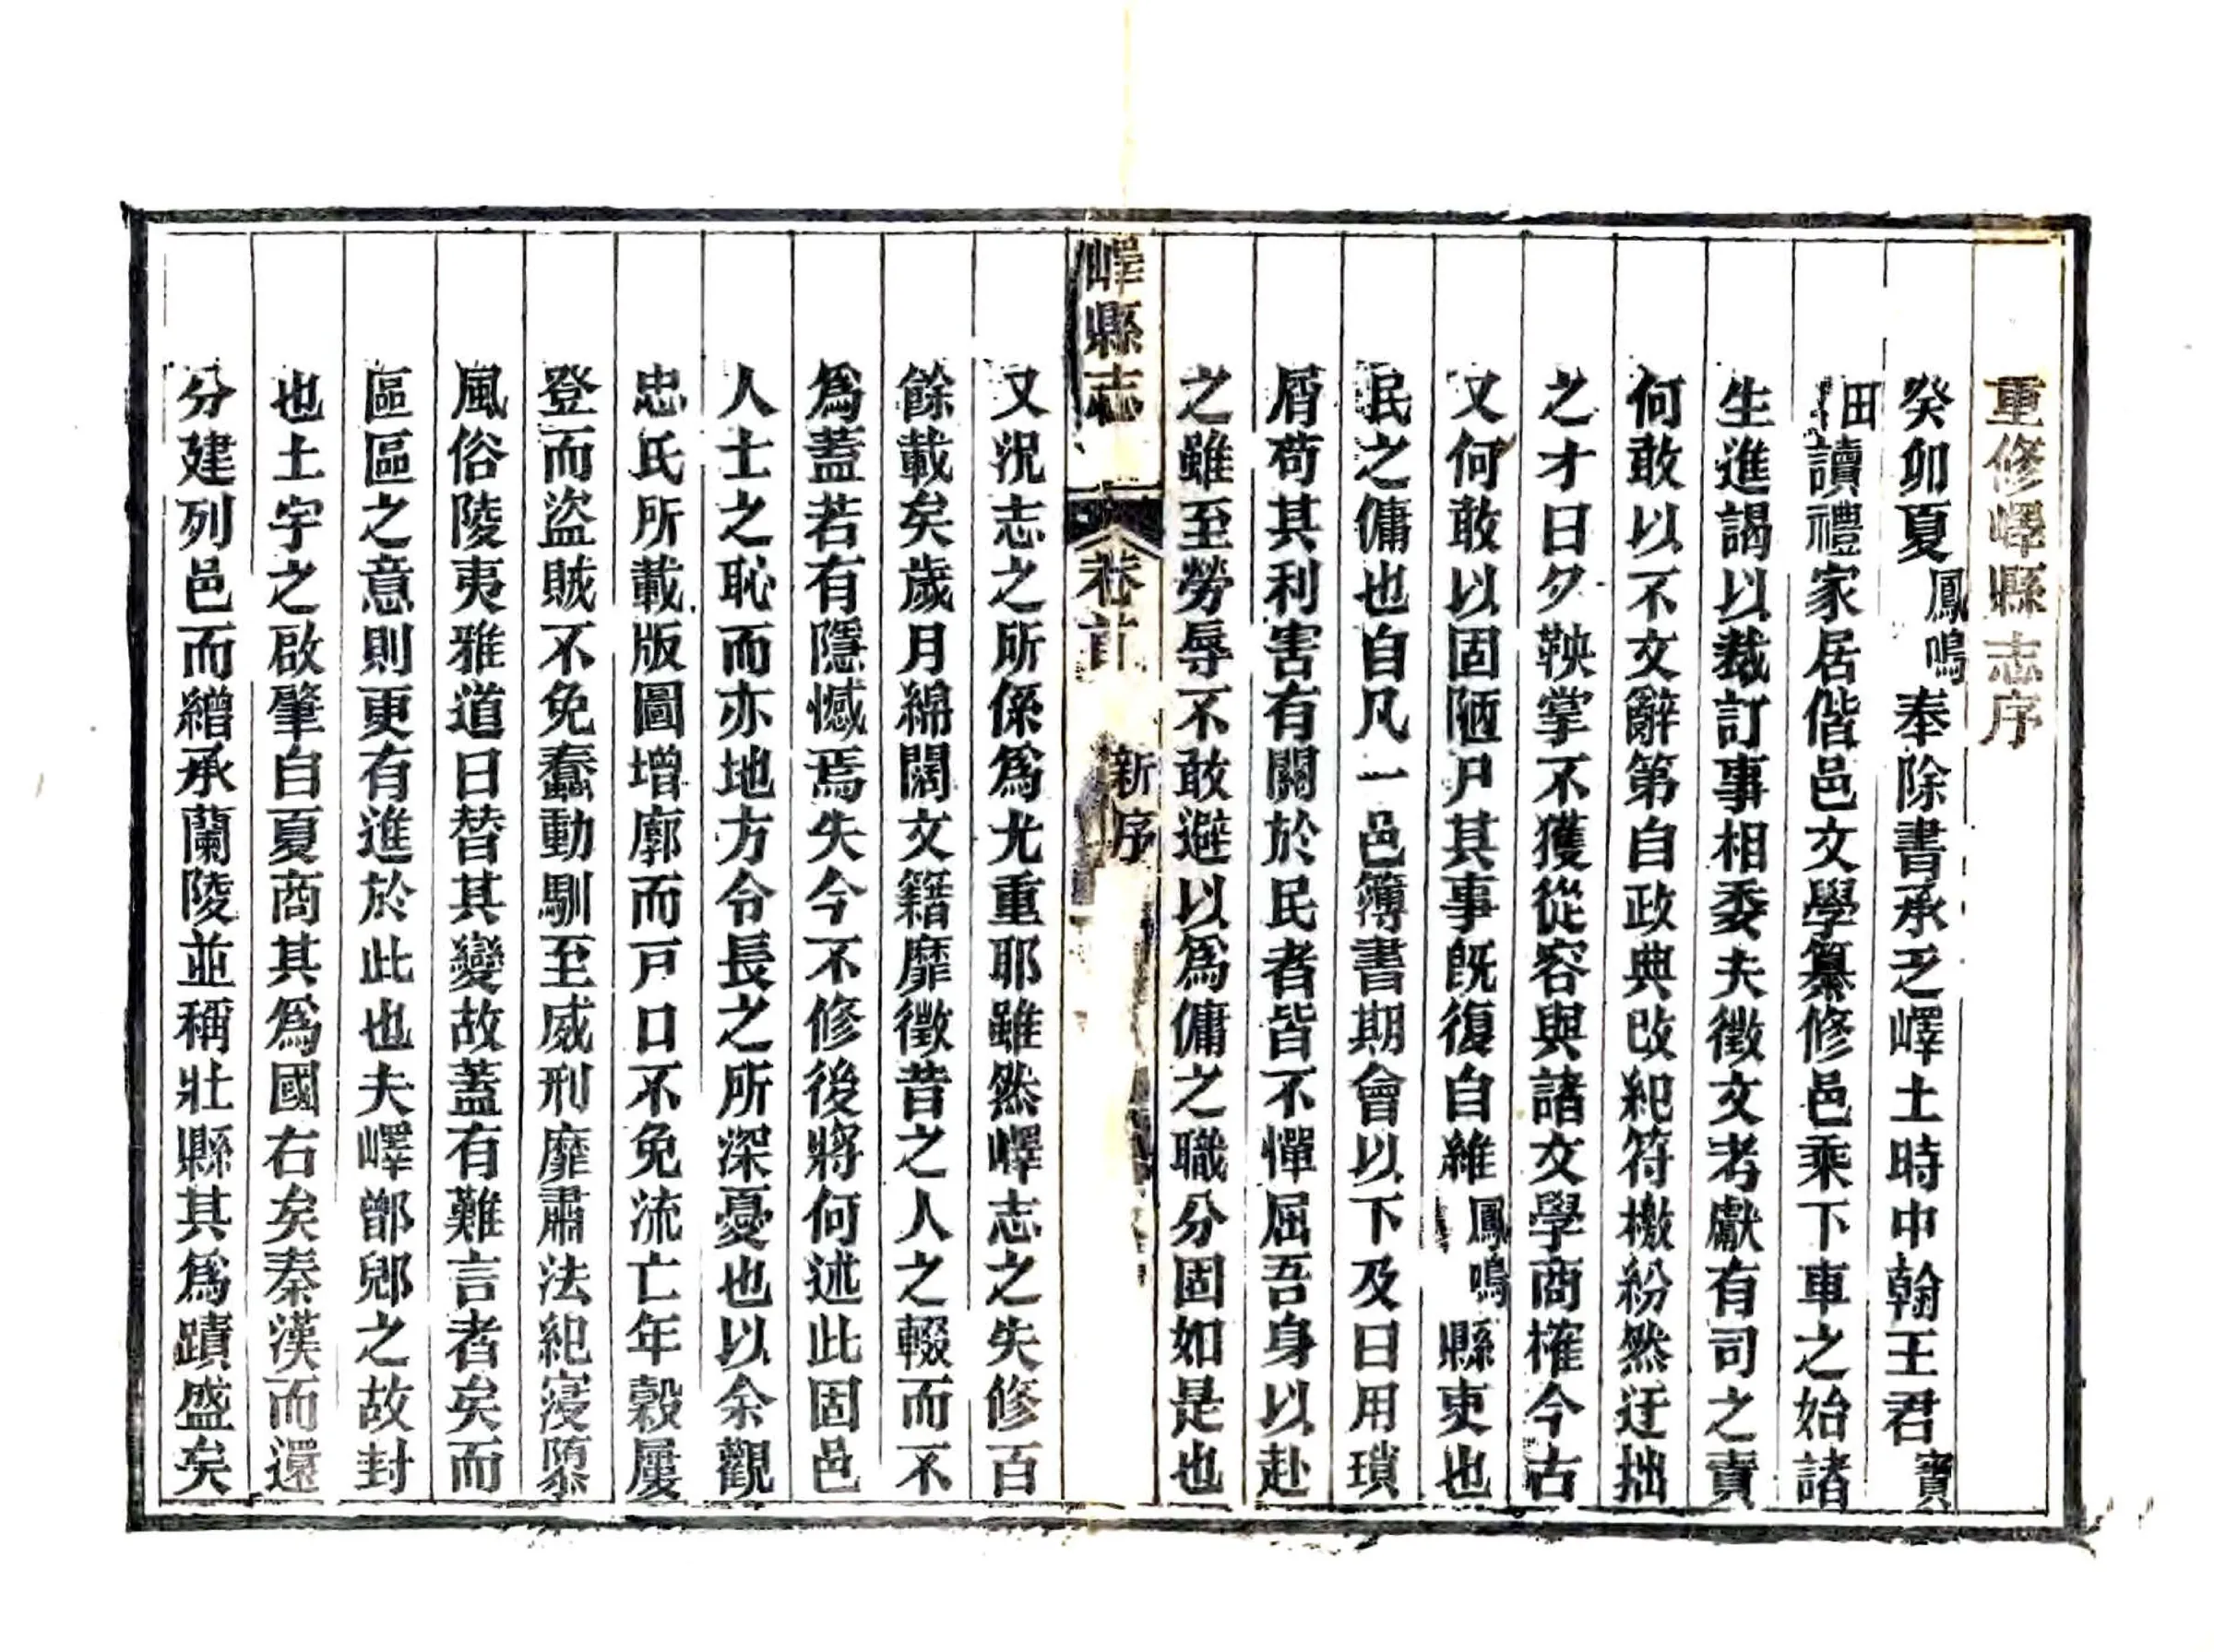 重修嶧縣志序
癸卯夏鳳鳴奉除書承乏嶧土時中翰王君寶
田讀禮家居偕邑文學纂修邑乘下車之始諸
生進謁以裁訂事相委夫徵文考獻有司之責
何敢以不文辭第自政典改紀符檄紛然迂拙
之才日夕鞅掌不獲從容與諸文學商榷今古
又何敢以固陋尸其事既復自維鳳鳴縣吏也
民之傭也自凡一邑簿書期會以下及日用瑣
屑苟其利害有關於民者皆不憚屈吾身以赴
之雖至勞辱不敢避以為傭之職分固如是也
嶧縣志
卷首
新序
又況志之所係為尤重耶雖然嶧志之失修百
餘載矣歲月綿闊文籍靡徵昔之人之輟而不
為蓋若有隱憾焉失今不修後將何述此固邑
人士之恥而亦地方令長之所深憂也以余觀
忠氏所載版圖增廓而戸口不免流亡年穀屢
登而盜賊不免蠢動馴至威刑靡肅法紀寖隳
風俗陵夷雅道日替其變故蓋有難言者矣而
區區之意則更有進於此也夫嶧鄫郳之故封
也土宇之啟肇自夏商其為國右矣秦漢而還
分建列邑而繒承蘭陵並稱壯縣其為蹟盛矣